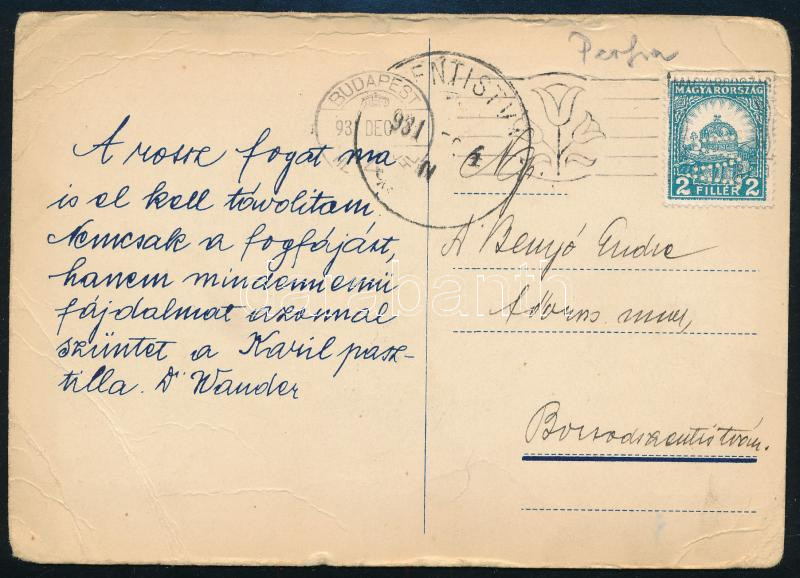 Perfin
A rossz fogat ma
is el kell távolítani.
Nemcsak a fogfájást,
hanem mindennemű
fájdalmat azonnal
szüntet a Karil pasz-
tilla. Dr Wander
BUDAPEST
931 DEC
ENTISTV
931
MAGYARORSZÁG
2 FILLÉR 2
Ng.
Benyó Endre
Borsodszentistván.
darabanth